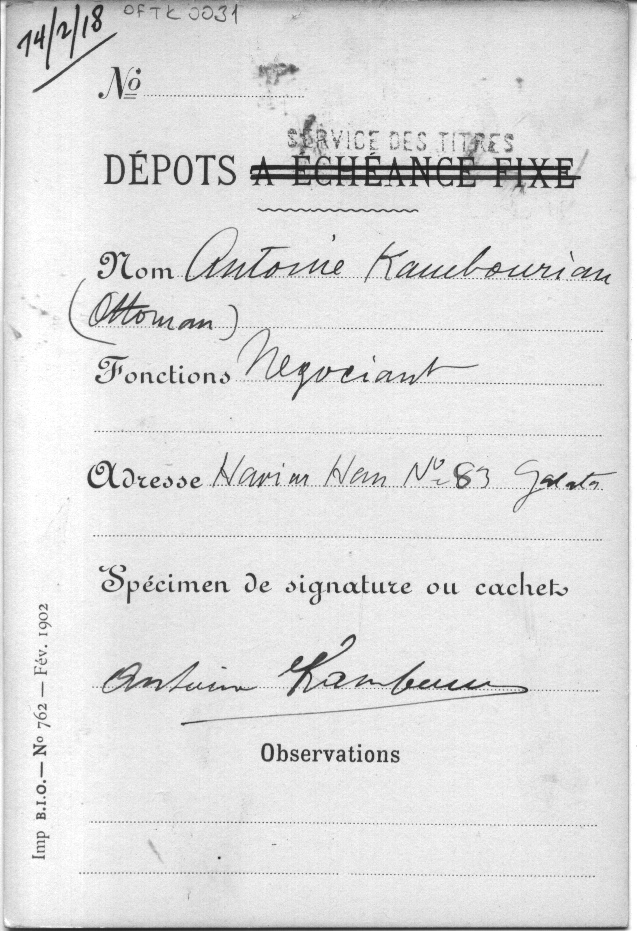 14/2/18
OFTŁ0031
Nº
SERVICE DES TITRES
DÉPOTS A ÉCHÉANCE FIXE
Nom Antoine Kambourian
(Ottoman)
Fonctions Negociant
Adresse Havier Han Nº 83 Galata
Spécimen de signature ou cachet
Antoine Kambourian
Observations
Imp B.I.O. — Nº 762 — Fév. 1902